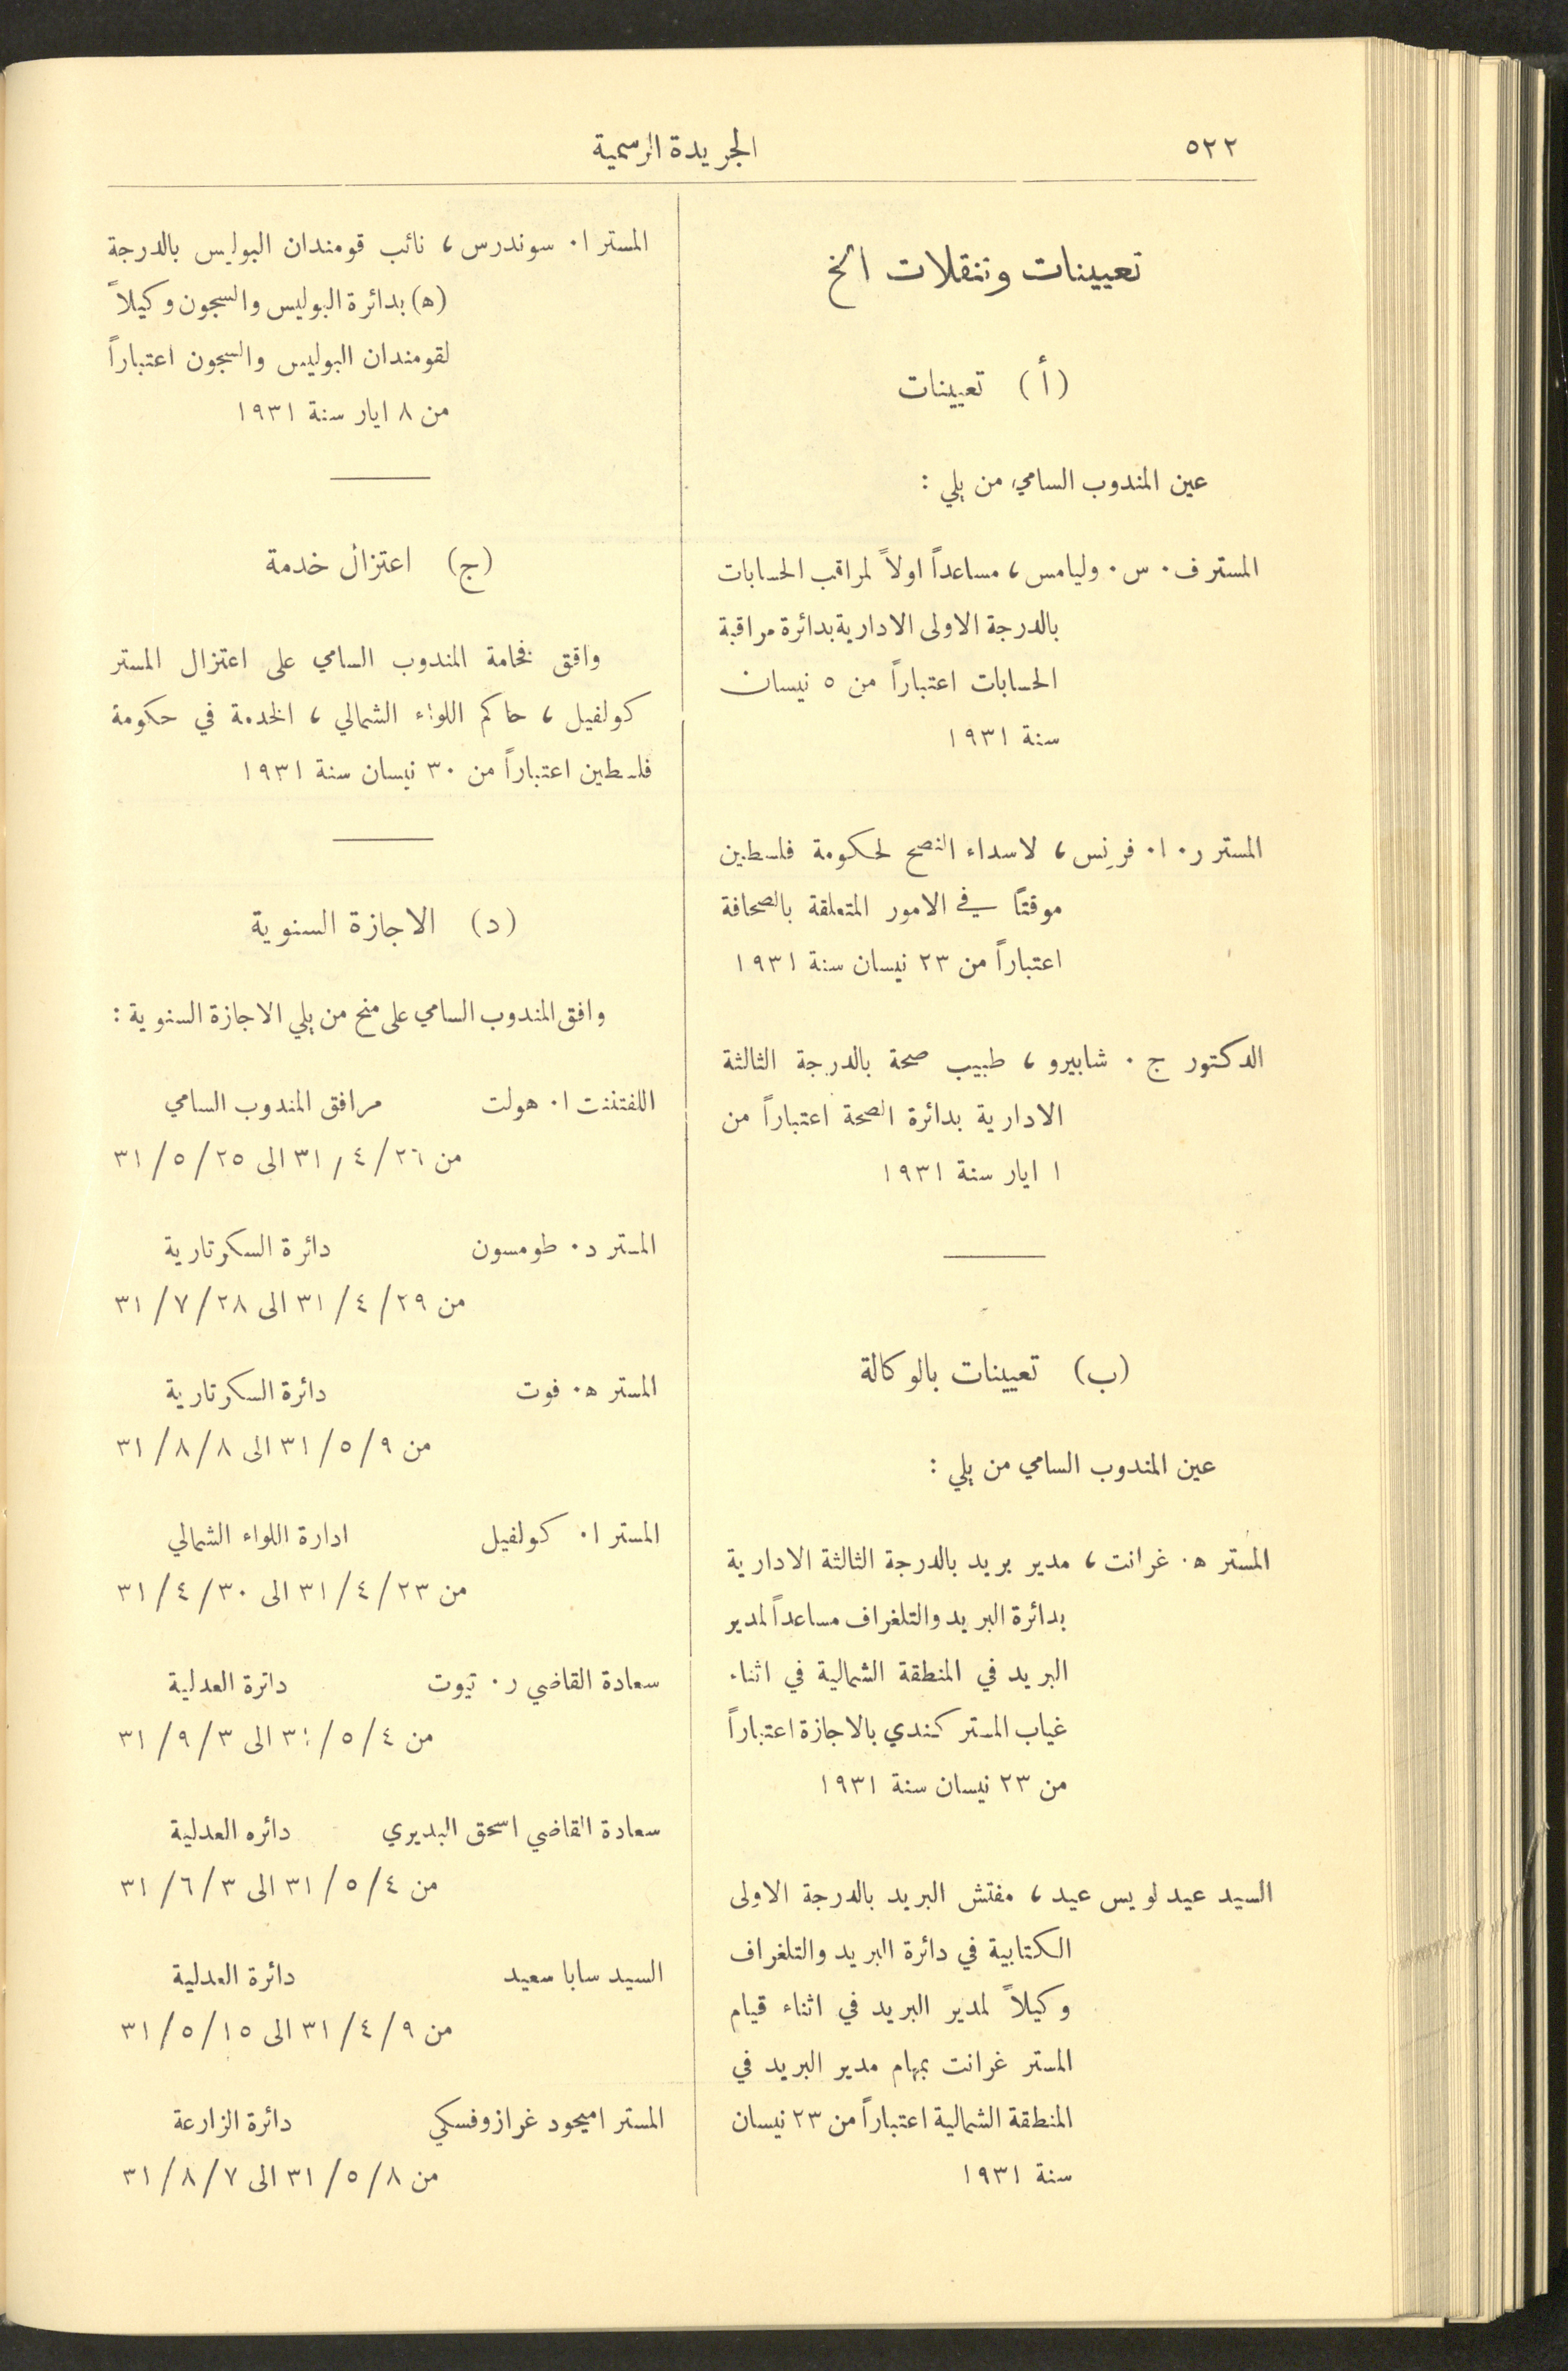 ٥٢٢
الجريدة الرسمية
تعيينات وتنقلات الخ
(أ) تعيينات
عين المندوب السامي من يلي :
المستر ف. س. وليامس، مساعداً اولاً لمراقب الحسابات
بالدرجة الاولى الادارية بدائرة مراقبة
الحسابات اعتباراً من ٥ نيسان
سنة ١٩٣١
المستر ر. ا. فرنس، لاسداء النصح لحكومة فلسطين
موقتاً في الامور المتعلقة بالصحافة
اعتباراً من ٢٣ نيسان سنة ١٩٣١
الدكتور ج. شابيرو، طبيب صحة بالدرجة الثالثة
الادارية بدائرة الصحة اعتباراً من
١ ايار سنة ١٩٣١
(ب) تعيينات بالوكالة
عين المندوب السامي من يلي :
المستر ه. غرانت، مدير بريد بالدرجة الثالثة الادارية
بدائرة البريد والتلغراف مساعداً لمدير
البريد في المنطقة الشمالية في اثناء
غياب المستر كندي بالاجازة اعتباراً
من ٢٣ نيسان سنة ١٩٣١
السيد عيد لويس عيد، مفتش البريد بالدرجة الاولى
الكتابية في دائرة البريد والتلغراف
وكيلاً لمدير البريد في اثناء قيام
المستر غرانت بمهام مدير البريد في
المنطقة الشمالية اعتباراً من ٢٣ نيسان
سنة ١٩٣١
المستر ا. سوندرس، نائب قومندان البوليس بالدرجة
(ه) بدائرة البوليس والسجون وكيلاً
لقومندان البوليس والسجون اعتباراً
من ٨ ايار سنة ١٩٣١
(ج) اعتزال خدمة
وافق فخامة المندوب السامي على اعتزال المستر
كولفيل، حاكم اللواء الشمالي، الخدمة في حكومة
فلسطين اعتباراً من ٣٠ نيسان سنة ١٩٣١
(د) الاجازة السنوية
وافق المندوب السامي على منح من يلي الاجازة السنوية :
اللفتننت ا. هولت مرافق المندوب السامي
من ٢٦/٤/٣١ الى ٢٥/٥/٣١
المستر د. طومسون دائرة السكرتارية
من ٢٩/٤/٣١ الى ٢٨/٧/٣١
المستر ه. فوت دائرة السكرتارية
من ٩/٥/٣١ الى ٨/٨/٣١
المستر ا. كولفيل ادارة اللواء الشمالي
من ٢٣/٤/٣١ الى ٣٠/٤/٣١
سعادة القاضي ر. تيوت دائرة العدلية
من ٤/٥/٣١ الى ٣/٩/٣١
سعادة القاضي اسحق البديري دائره العدلية
من ٤/٥/٣١ الى ٣/٦/٣١
السيد سابا سعيد دائرة العدلية
من ٩/٤/٣١ الى ١٥/٥/٣١
المستر اميحود غرازوفسكي دائرة الزارعة
من ٨/٥/٣١ الى ٧/٨/٣١